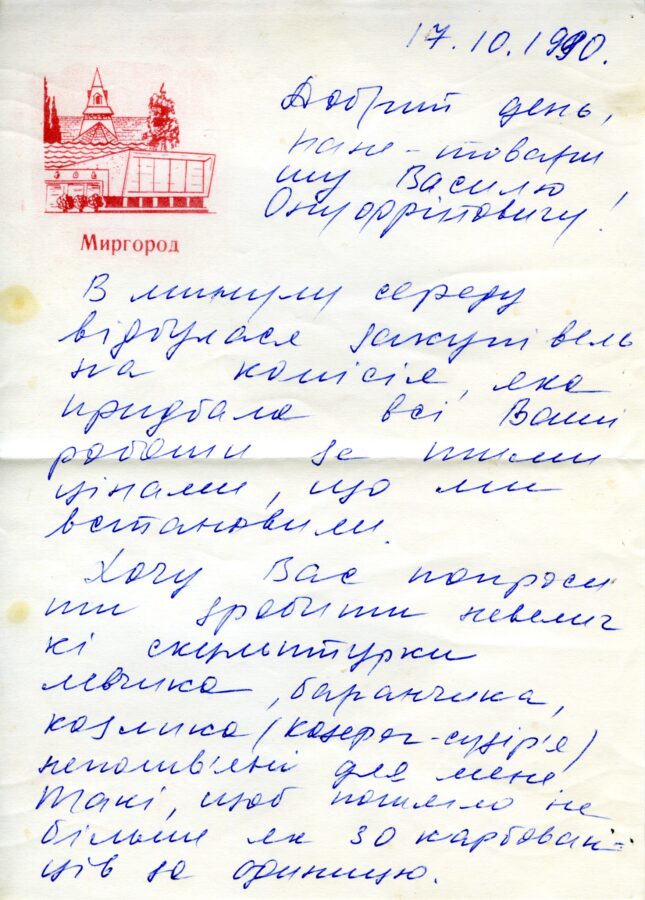 17.10.1990.
Добрий день,
пане-товари
шу Василю
Онуфрійовичу!
Миргород
В минулу середу
відбулася закупівель
на комісія, яка
придбала всі Ваші
роботи за тими
цінами, що ми
встановили.
Хочу Вас попроси
ти зробити невелич
кі скульптурки
левчика, баранчика,
козлика (козерог-сузір'я)
неполив'яні для мене
Такі, щоб потягло не
більше як 30 карбован-
ців за одиницю.